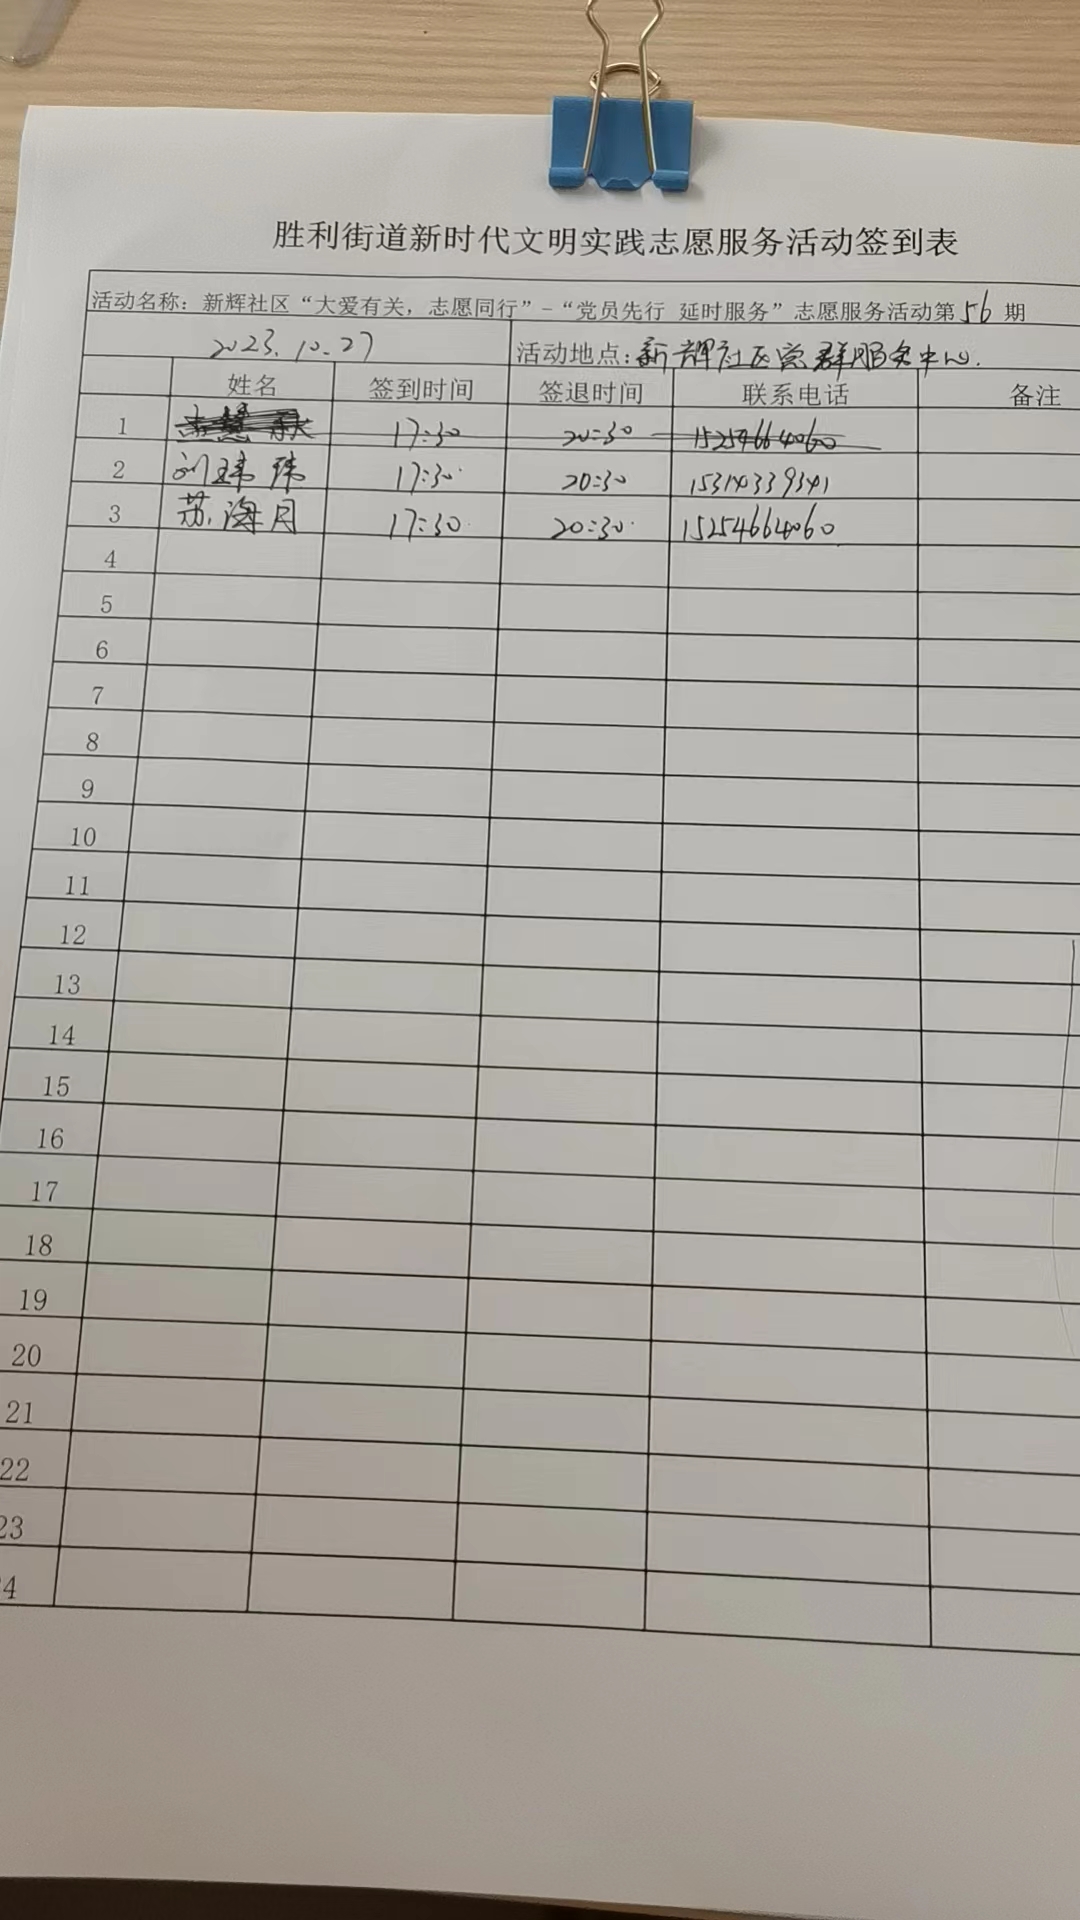 胜利街道新时代文明实践志愿服务活动签到表
活动名称：新辉社区“大爱有关，志愿同行”-“党员先行 延时服务”志愿服务活动第56期
2023.10.27 活动地点：新辉社区党群服务中心.
姓名 签到时间 签退时间 联系电话 备注
1 17:30 20:30 15254664060
2 刘玮玮 17:30 20:30 15314339341
3 苏海月 17:30 20:30 15254664060
4
5
6
7
8
9
10
11
12
13
14
15
16
17
18
19
20
21
22
23
4